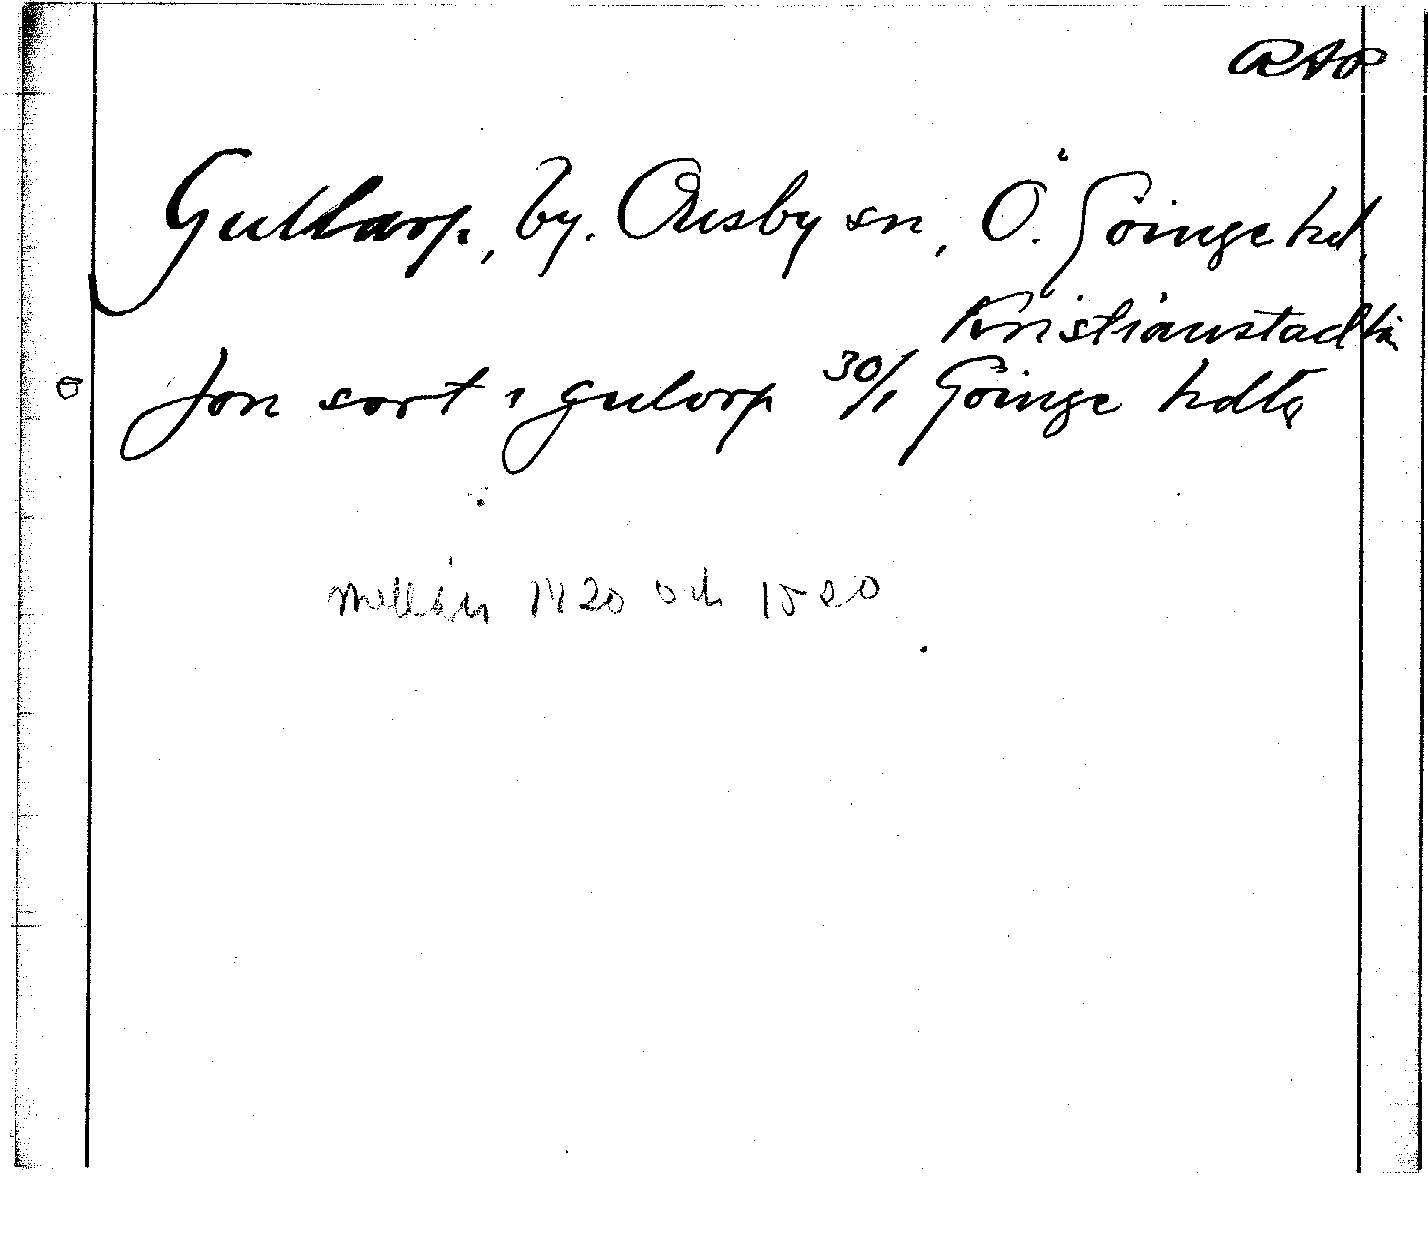 RAP
Gullarp, by. Ousby sn, Ö. Göinge hd.
Kristianstad län
Jon sort i gulorp 30/1 Göinge hdtg
mellan 1420 och 1520